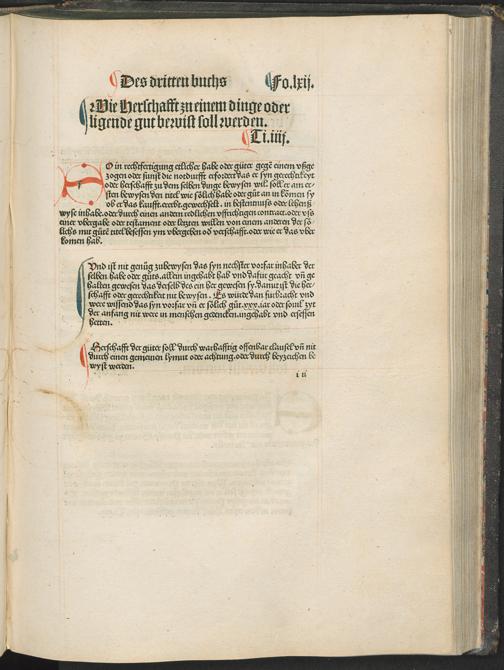 Des dritten buchs Fo.lxij.
Wie Herschafft zu einem dinge oder
ligende gut bewist soll werden.
Ti.iiij.
SO in rechtfertigung etlicher habe oder güter gegē einem vßge
zogen oder sunst die nordurfft erfordert das er syn gerechtikeyt
oder herschafft zu dem selben dinge bewysen will soll er am er-
sten bewysen den titel wie sölich habe oder gůt an in komen sy
ob er das kaufft.ererbt.gewechselt. in bestentnuß oder lehenß
wyse inhabe.oder durch einen andern redlichen vffrichtigen contract.oder vß
einer vbergabe oder testament oder letzten willen von einem anderen der sö-
lichs mit gůtē titel besessen ym vbergeben oð verschafft.oder wie er das vber
komen hab.
Vnd ist nit genůg zubewysen das syn nechster vorfar inhaber der
selben habe oder gůts.allein ingehabt hab vnd dafur geacht vñ ge
halten gewesen das derselb des ein her gewesen sy.damit ist die her-
schafft oder gerechtikeit nit bewysen. Es würde dan fürbracht vnd
were wissend das syn vorfar vñ er sölich gůt.xxx.iar oder souil zyt
der anfang nit were in menschen gedencken.ingehabt vnd ersessen
hetten.
Herschafft der güter soll durch warhafftig offenbar clausel vñ nit
durch einen gemeinen lymut oder achtung.oder durch beyzeichen be
wyst werden.
i ii